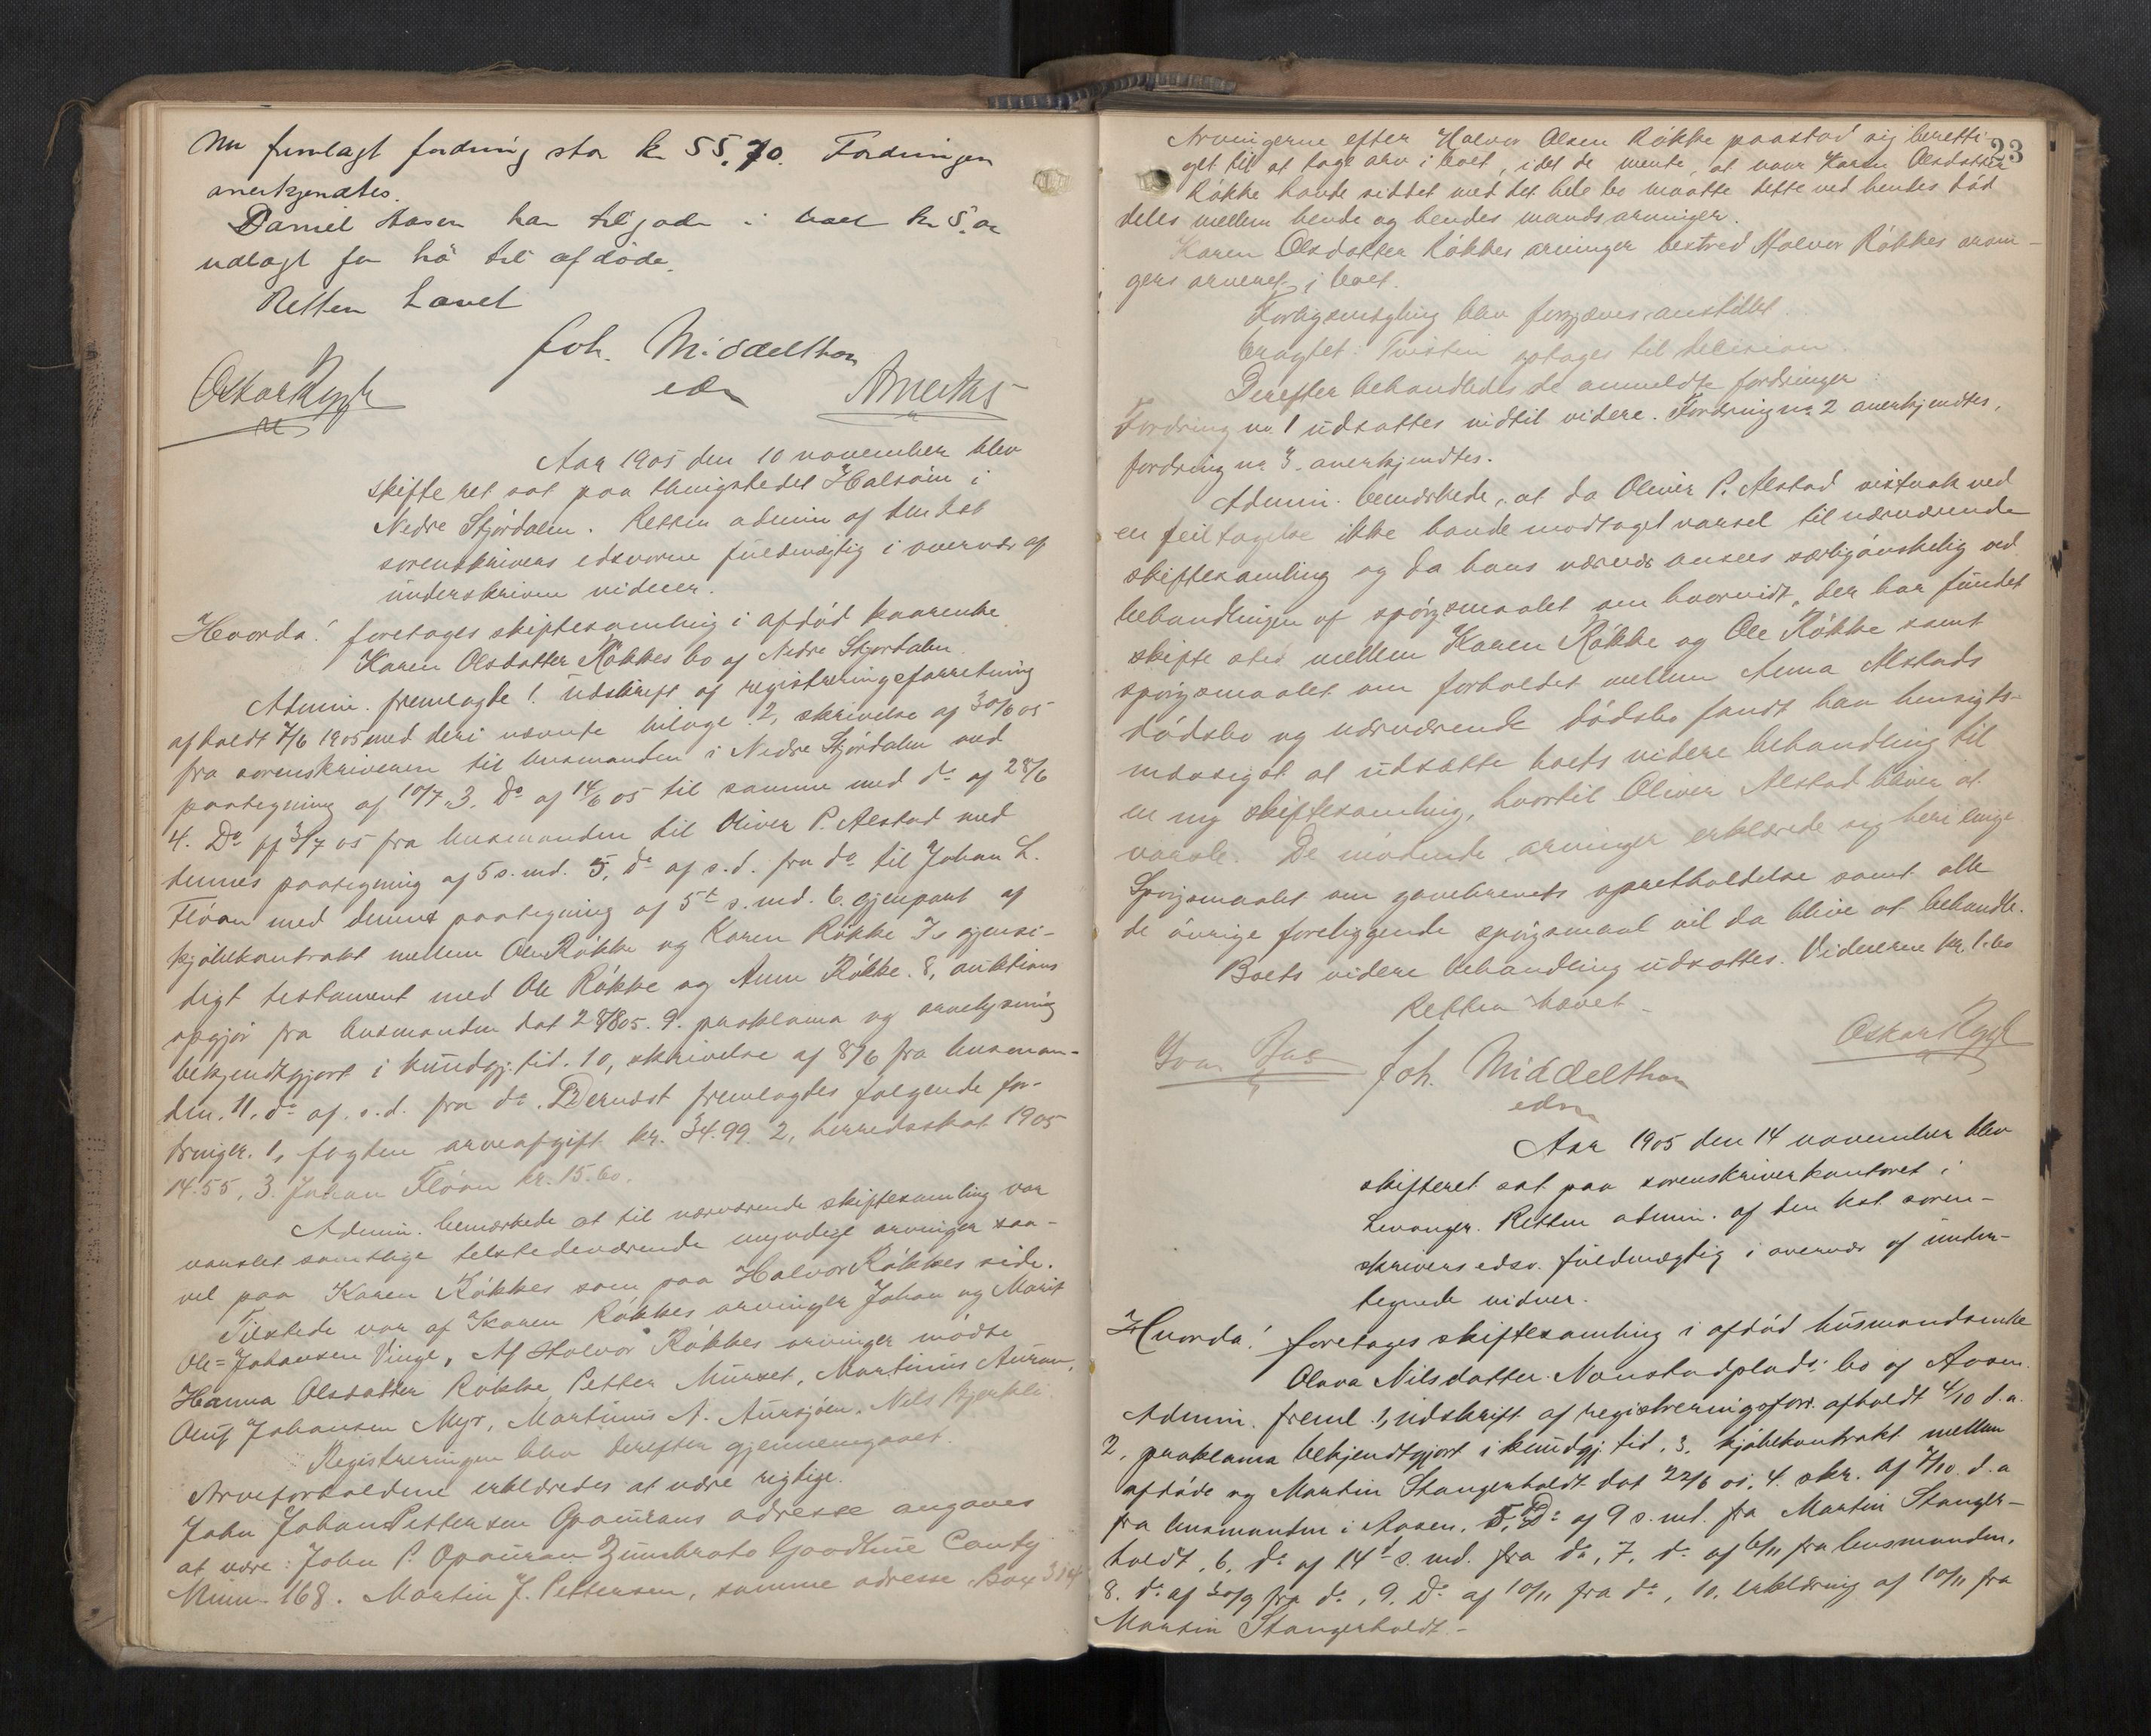 Nu fremlagt fordring stor kr 55,70. Fordringen
anerkjendtes.
Daniel Aasen har tilgode i boet kr 5,00
udlagt for hö til afdöde.
Retten hævet
Joh. Middelthon
edsv
Oskar Rygh
Aar 1905 den 10 november blev
skifteret sat paa thingstedet Halsöin i
Nedre Stjördalen. Retten admin af den kst
sorenskrivers edsvorne fuldmægtig i overvær af
underskrivne vidner.
Hvorda! foretages skiftesamling i afdöd kaarenke
Karen Olsdatter Rökkes bo af Nedre Stjördalen.
Admin. fremlagde 1. Udskrift af registreringsforretning
afholdt 7/6 1905 med deri nævnte bilage. 2, skrivelse af 30/6 05
fra sorenskriveren til lensmanden i Nedre Stjördalen med
paategning af 10/7. 3. Do af 14/6 05 til samme med do af 28/6
4. Do af 3/7 05 fra lensmanden til Oliver P. Alstad med
dennes paategning af 5 s. md. 5, do af s. d. fra do til Johan L.
Flöan med dennes paategning af 5t s. md. 6. gjenpart af
kjöbekontrakt mellem Ole Rökke og Karen Rökke 7. gjensi-
digt testament med Ole Rökke og Anne Rökke. 8, auktions
opgjör fra lensmanden dat 28/8 05. 9. proklama og arvelysning
bekjendtgjort i kundgj. tid. 10, skrivelse af 8/6 fra lensman-
den. 11. do af. s. d. fra do. Dernæst fremlagdes folgende for-
dringer. 1, fogden arveafgift kr. 34.99 2, herredsskat 1905
14.55, 3. Johan Flöan kr. 15.60.
Admin. bemærkede at til nærværende skiftesamling var
varslet samtlige tilstedeværende myndige arvinger saa-
vel paa Karen Rökkes som paa Halvor Rökkes side.
Tilstede var af Karen Rökkes arvinger Johan og Marit
Ole = Johansen Vinge, Af Halvor Rökkes arvinger mödte
Hanna Olsdatter Rökke Petter Muruet, Martinus Auran,
Oluf Johansen Myr, Martinus A. Aursjöen. Nils Bjerkli.
Registreringen blev derefter gjennemgaaet.
Arveforholdene erklæredes at være rigtige.
John Johan Pettersen Opaurans adresse angaves
at være: John P. Opauran Zumbrota Goodhue Canty
Minn. 168. Martin J. Pettersen, samme adresse Box 314
23
Arvingerne efter Halvor Olsen Rökke paastod sig beretti-
get til at tage arv i boet, idet de mente, at naar Karen Olsdatter
Rökke havde siddet med det hele bo maatte dette ved hendes död
deles mellem hende og hendes mands arvinger.
Karen Olsdatter Rökkes arvinger bestred Halvor Rökkes arvin-
gers arveret i boet.
Forligsmægling blev forgjæves anstillet.
Eragtet: Tvisten optages til decision.
Derefter behandledes de anmeldte fordringer:
Fordring nr. 1 udsattes indtil videre. Fordring nr 2 anerkjendtes,
fordring nr 3. anerkjendtes.
Admin. bemærkede, at da Oliver P. Alstad sistnok ved
en feiltagelse ikke havde modtaget varsel til nærværende
skiftesamling og da hans nærvær ansees særlig önskelig ved
behandlingen af spörgsmaalet om hvorvidt, der har fundet
skifte sted mellem Karen Rökke og Ole Rökke samt
spörgsmaalet om forholdet mellem Anna Alstads
dödsbo og nærværende dödsbo fandt han hensigts-
mæssigst at udsætte boets videre behandling til
en ny skiftesamling, hvortil Oliver Alstad bliver at
varsle. De mödende arvinger erklærede sig heri enige.
Spörgsmaalet om gavebrevets opretholdelse samt alle
de övrige foreliggende spörgsmaal vil da blive at behandle.
Boets videre behandling udsattes. Vidnerne kr. 1.60
Retten hævet
Oskar Rygh
Joh. Middelthon
edsv
Aar 1905 den 14 november blev
skifteret sat paa sorenskriverkontoret i
Levanger. Retten admin. af den kst soren-
skrivers edsv. fuldmægtig i overvær af under-
tegnede vidner.
Hvorda! foretages skiftesamling i afdöd husmandsenke
Olava Nilsdatter Nonstadplads: bo af Aasen.
Admin. freml. 1, udskrift af registreringsforr. afholdt 4/10 d. a.
2, proklama bekjendtgjort i kundgj. tid. 3. kjöbekontrakt mellem
afdöde og Martin Stangerholdt dat 22/6 05. 4. skr. af 7/10. d. a
fra lensmanden i Aasen. 5, Do af 9 s. md. fra Martin Stanger-
holdt, 6, do af 14d s. md. fra do, 7, do af 6/11 fra lensmanden.
8. do af 30/9 fra do, 9, Do af 10/11 fra do, 10, erklæring af 10/11 fra
Martin Stangerholdt. -